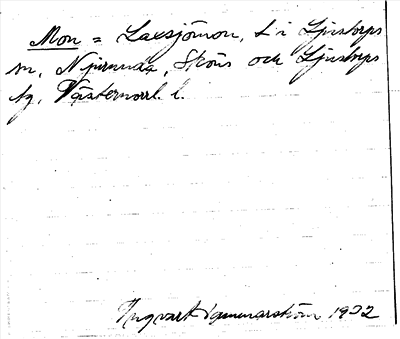 Mon = Laxsjömon, t i Ljustorps
sn, Njurunda, Sköns och Ljustorps
tg. Västernorrl. l.
Hammarström 1932